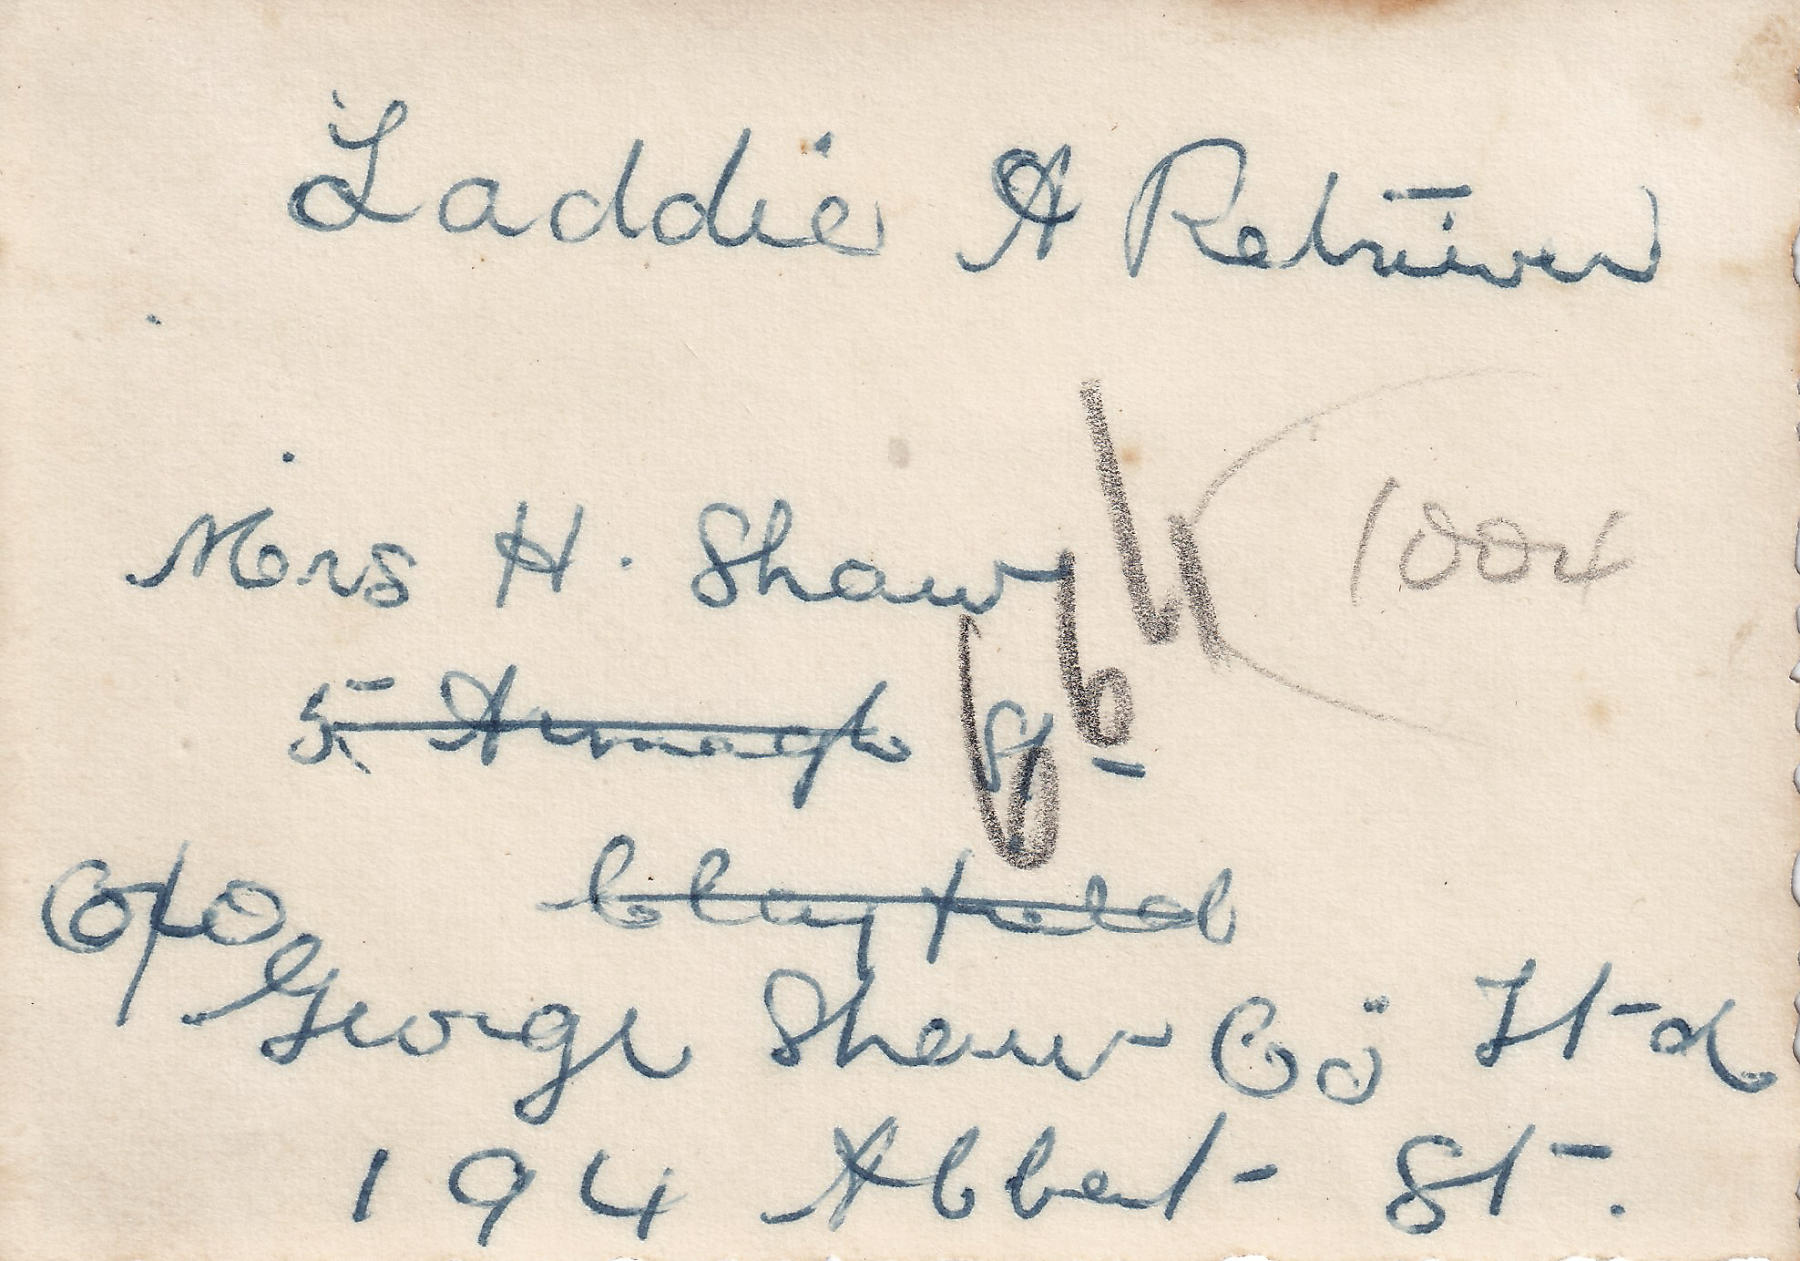 Laddie A Retriever
1004
664
Mrs H. Shaw
5 Armagh St
Clayfield
C/o
George Shaw Co Ltd
194 Abbert St.